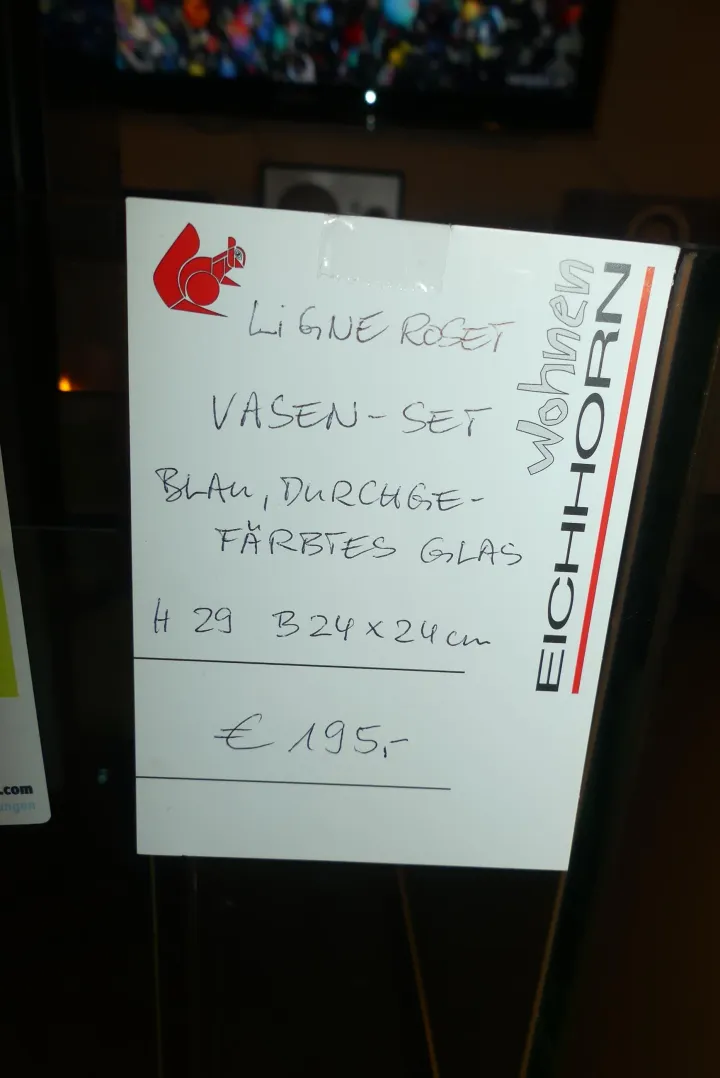 LiGNE ROSET
VASEN-SET
BLAU, DURCHGE-
FÄRBTES GLAS
H 29 B 24 x 24 cm
€ 195,-
Wohnen
EICHHORN
.com
ungen